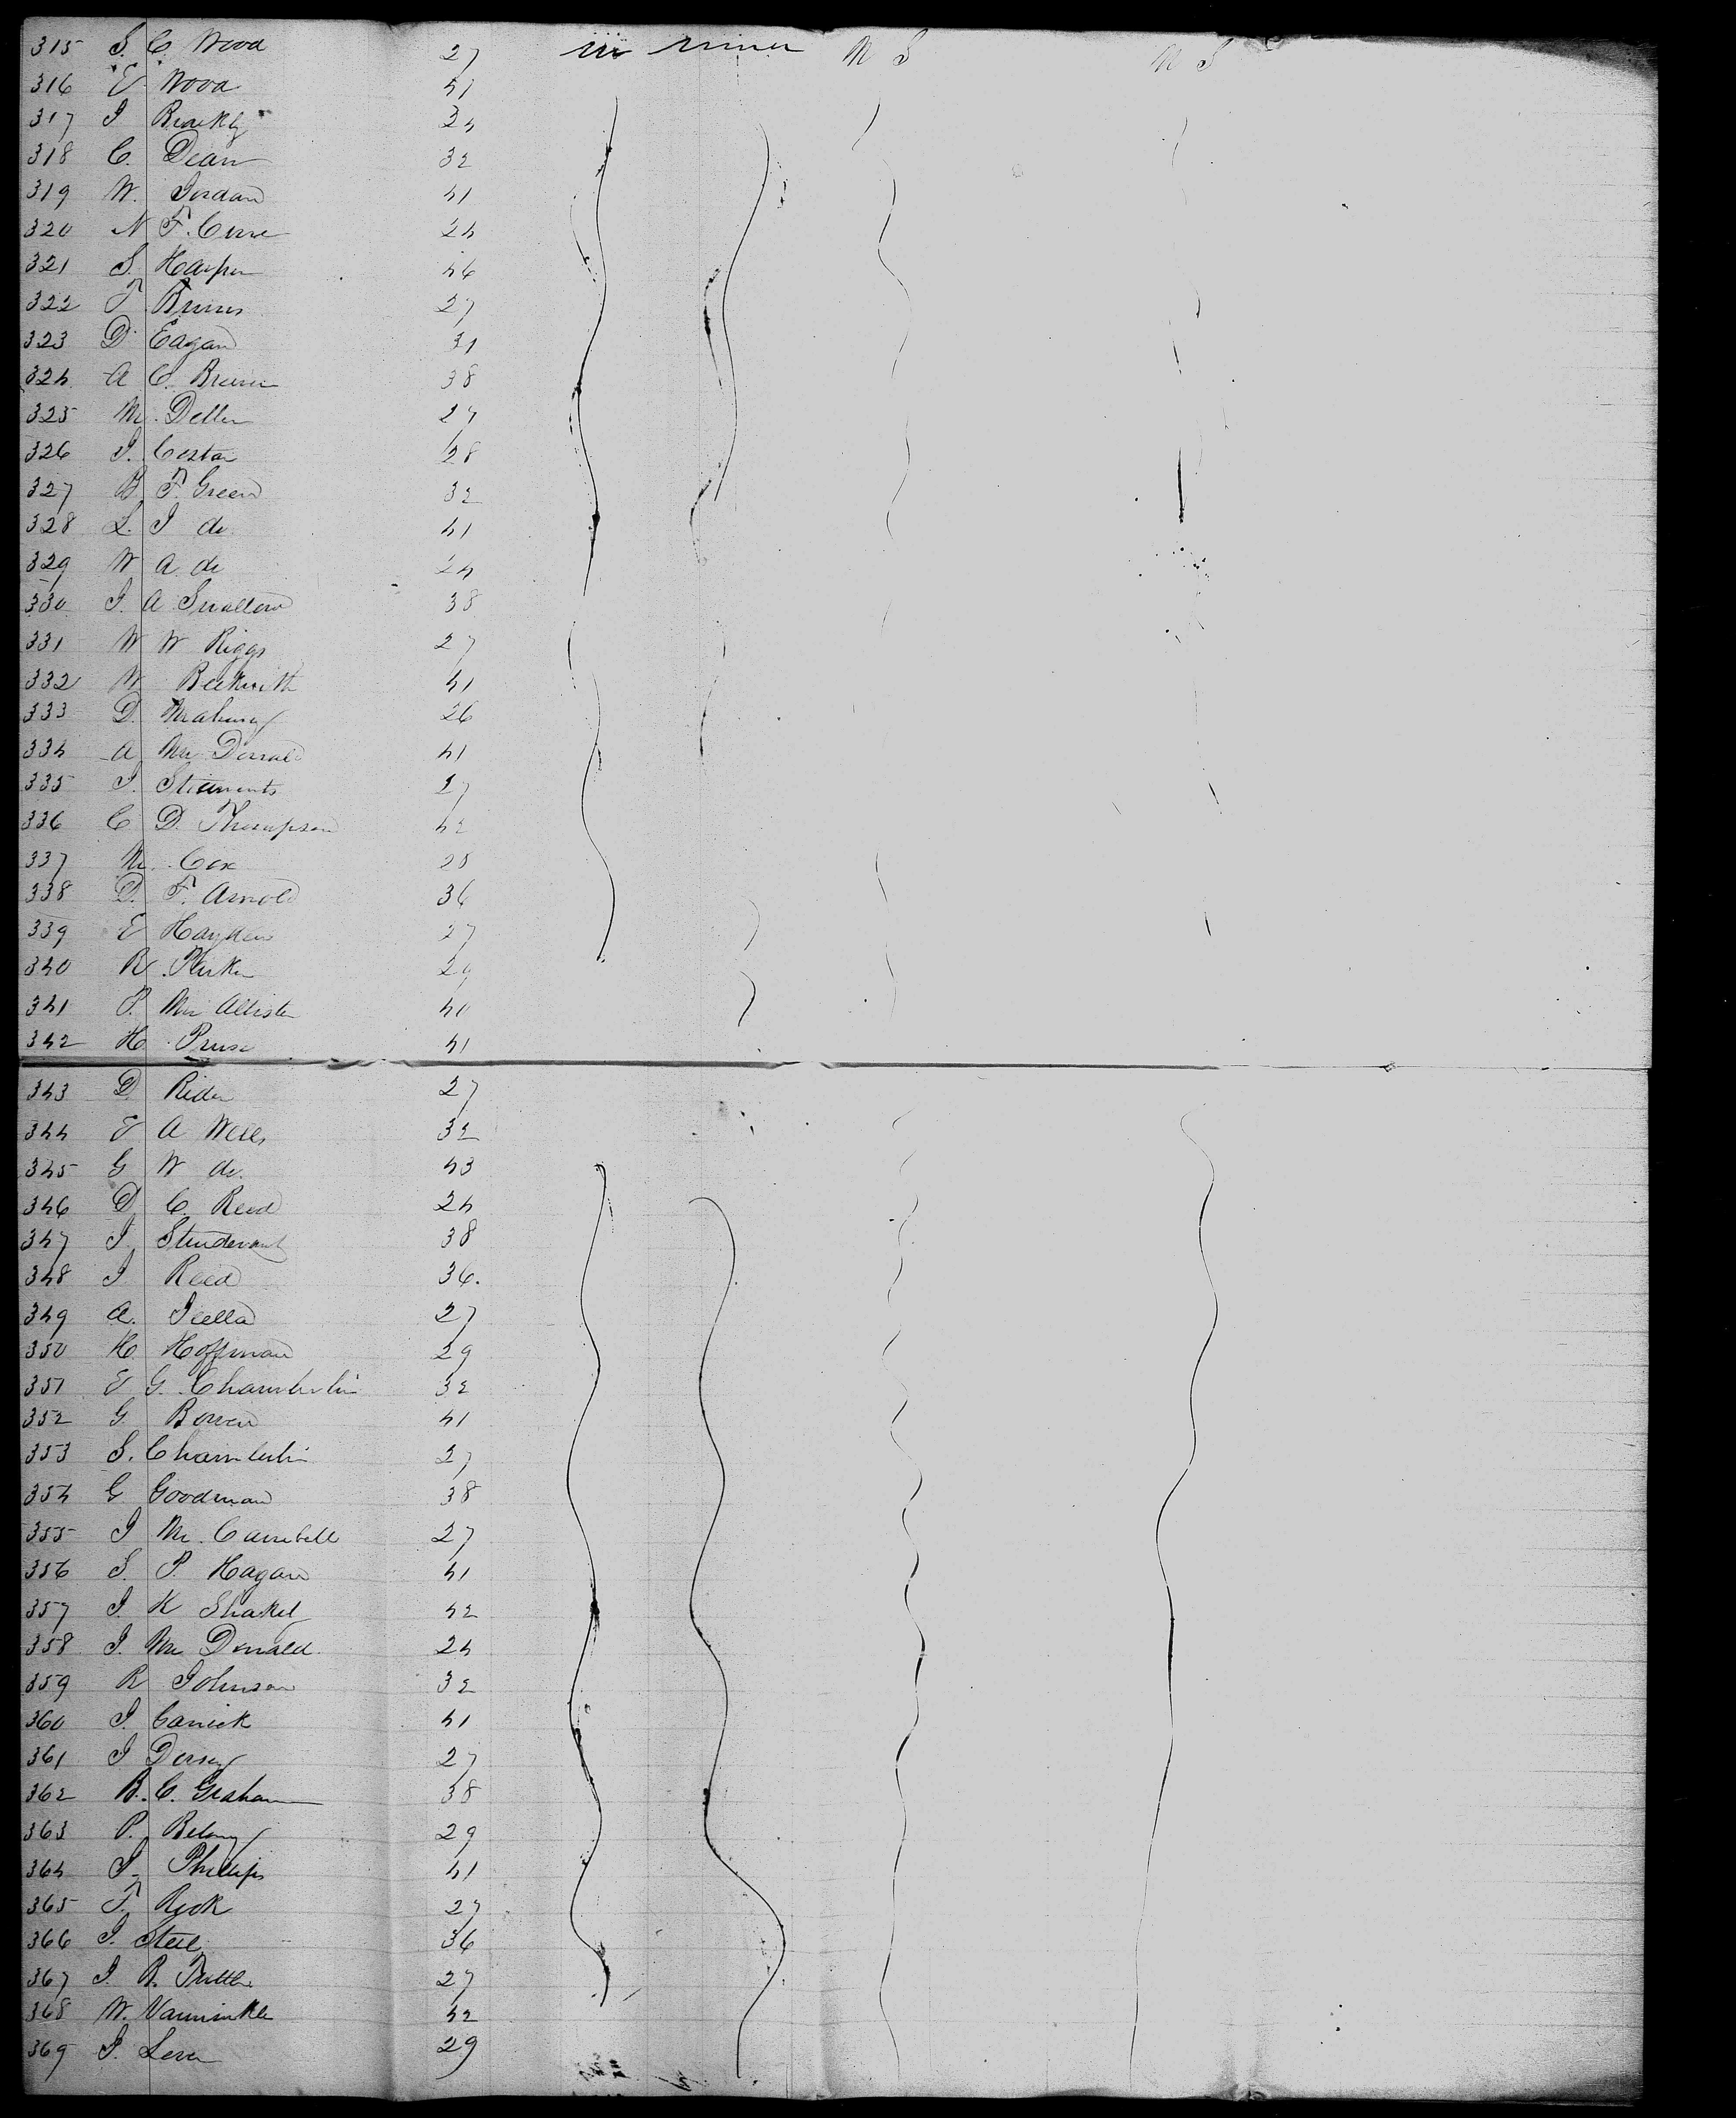 315 S. C Wood 27 m miner U S U S
316 E Wood 41
317 J Brackly 24
318 C. Dean 32
319 W. Jordan 41
320 N F. Cone 24
321 S. Harper 46
322 F Burns 27
323 D. Eagan 31
324 A C. Brown 38
325 M. Deller 27
326 J. Costa 28
327 B F. Green 32
328 L. J do 41
329 W A do 24
330 J. A Swallow 38
331 W W Riggs 27
332 W Beckwith 41
333 D. Mahuny 26
334 A Mc Donald 41
335 J. 27
336 C D. Thompson 42
337 M. Cox 28
338 D. F. Arnold 36
339 E Hayden 27
340 R. Parker 29
341 P. Mc Allister 40
342 H. 41
343 D Rider 27
344 E A Wells 32
345 G W do. 43
346 D C. Reed 24
347 J. Studevant 38
348 J Reed 36.
349 A. 27
350 H. Hoffman 29
351 E G. Chamberlin 32
352 G. Bowen 41
353 S. Chamberlin 27
354 G Goodman 38
355 J Mc. Cambell 27
356 S. P. Hagan 41
357 J. K Shakel 42
358 J. Mc Donald 24
359 R Johnson 32
360 J. Carrick 41
361 J Dorsey 27
362 B. C. Graham 38
363 P. Belany 29
364 J. Phillips 41
365 F. Rook 27
366 J. Steel 36
367 J. B. Tuttle 27
368 W. Vanwinkle 42
369 J. 29